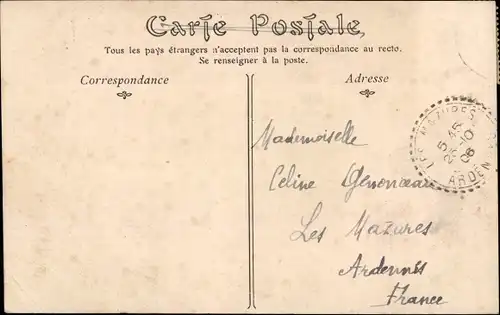 Carte Postale
Tous les pays étrangers n'acceptent pas la correspondance au recto.
Se renseigner à la poste.
Correspondance
Adresse
Mademoiselle
Celine
Les Mazures
Ardennes
France
LES MAZURES
5 45
25 - 10
06
ARDEN